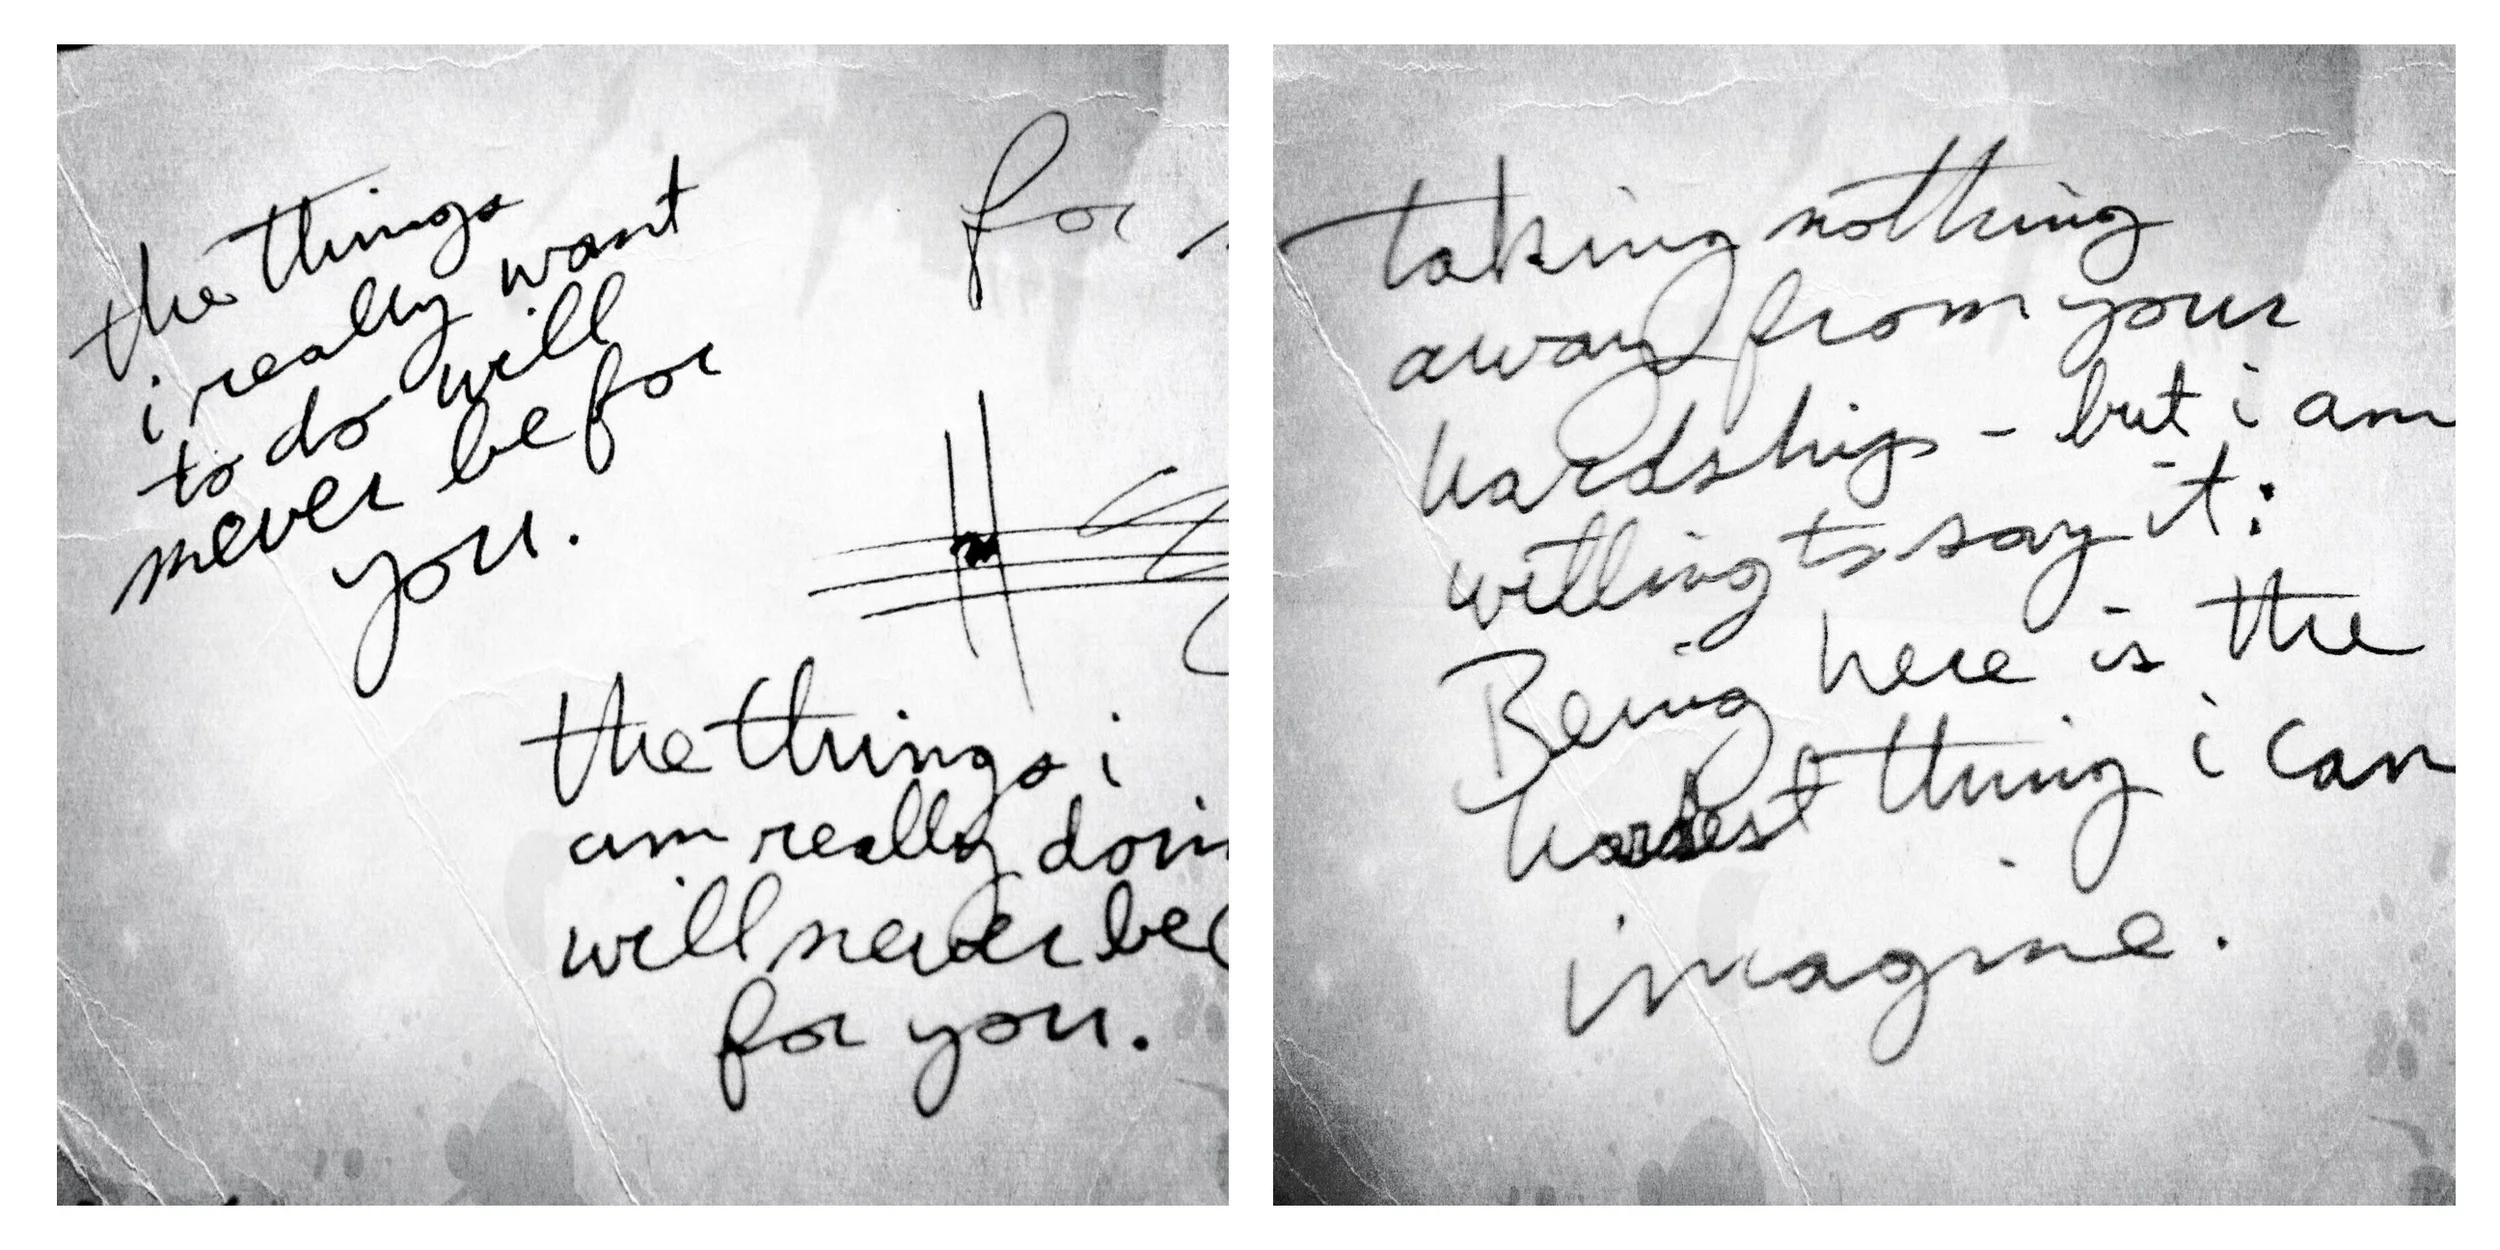 the things
i really want
to do will
never be for
you.
for
the things i
am really doin
will never be
for you.
taking nothing
away from your
hardships - but i am
willing to say it:
Being here is the
hardest thing i can
imagine.